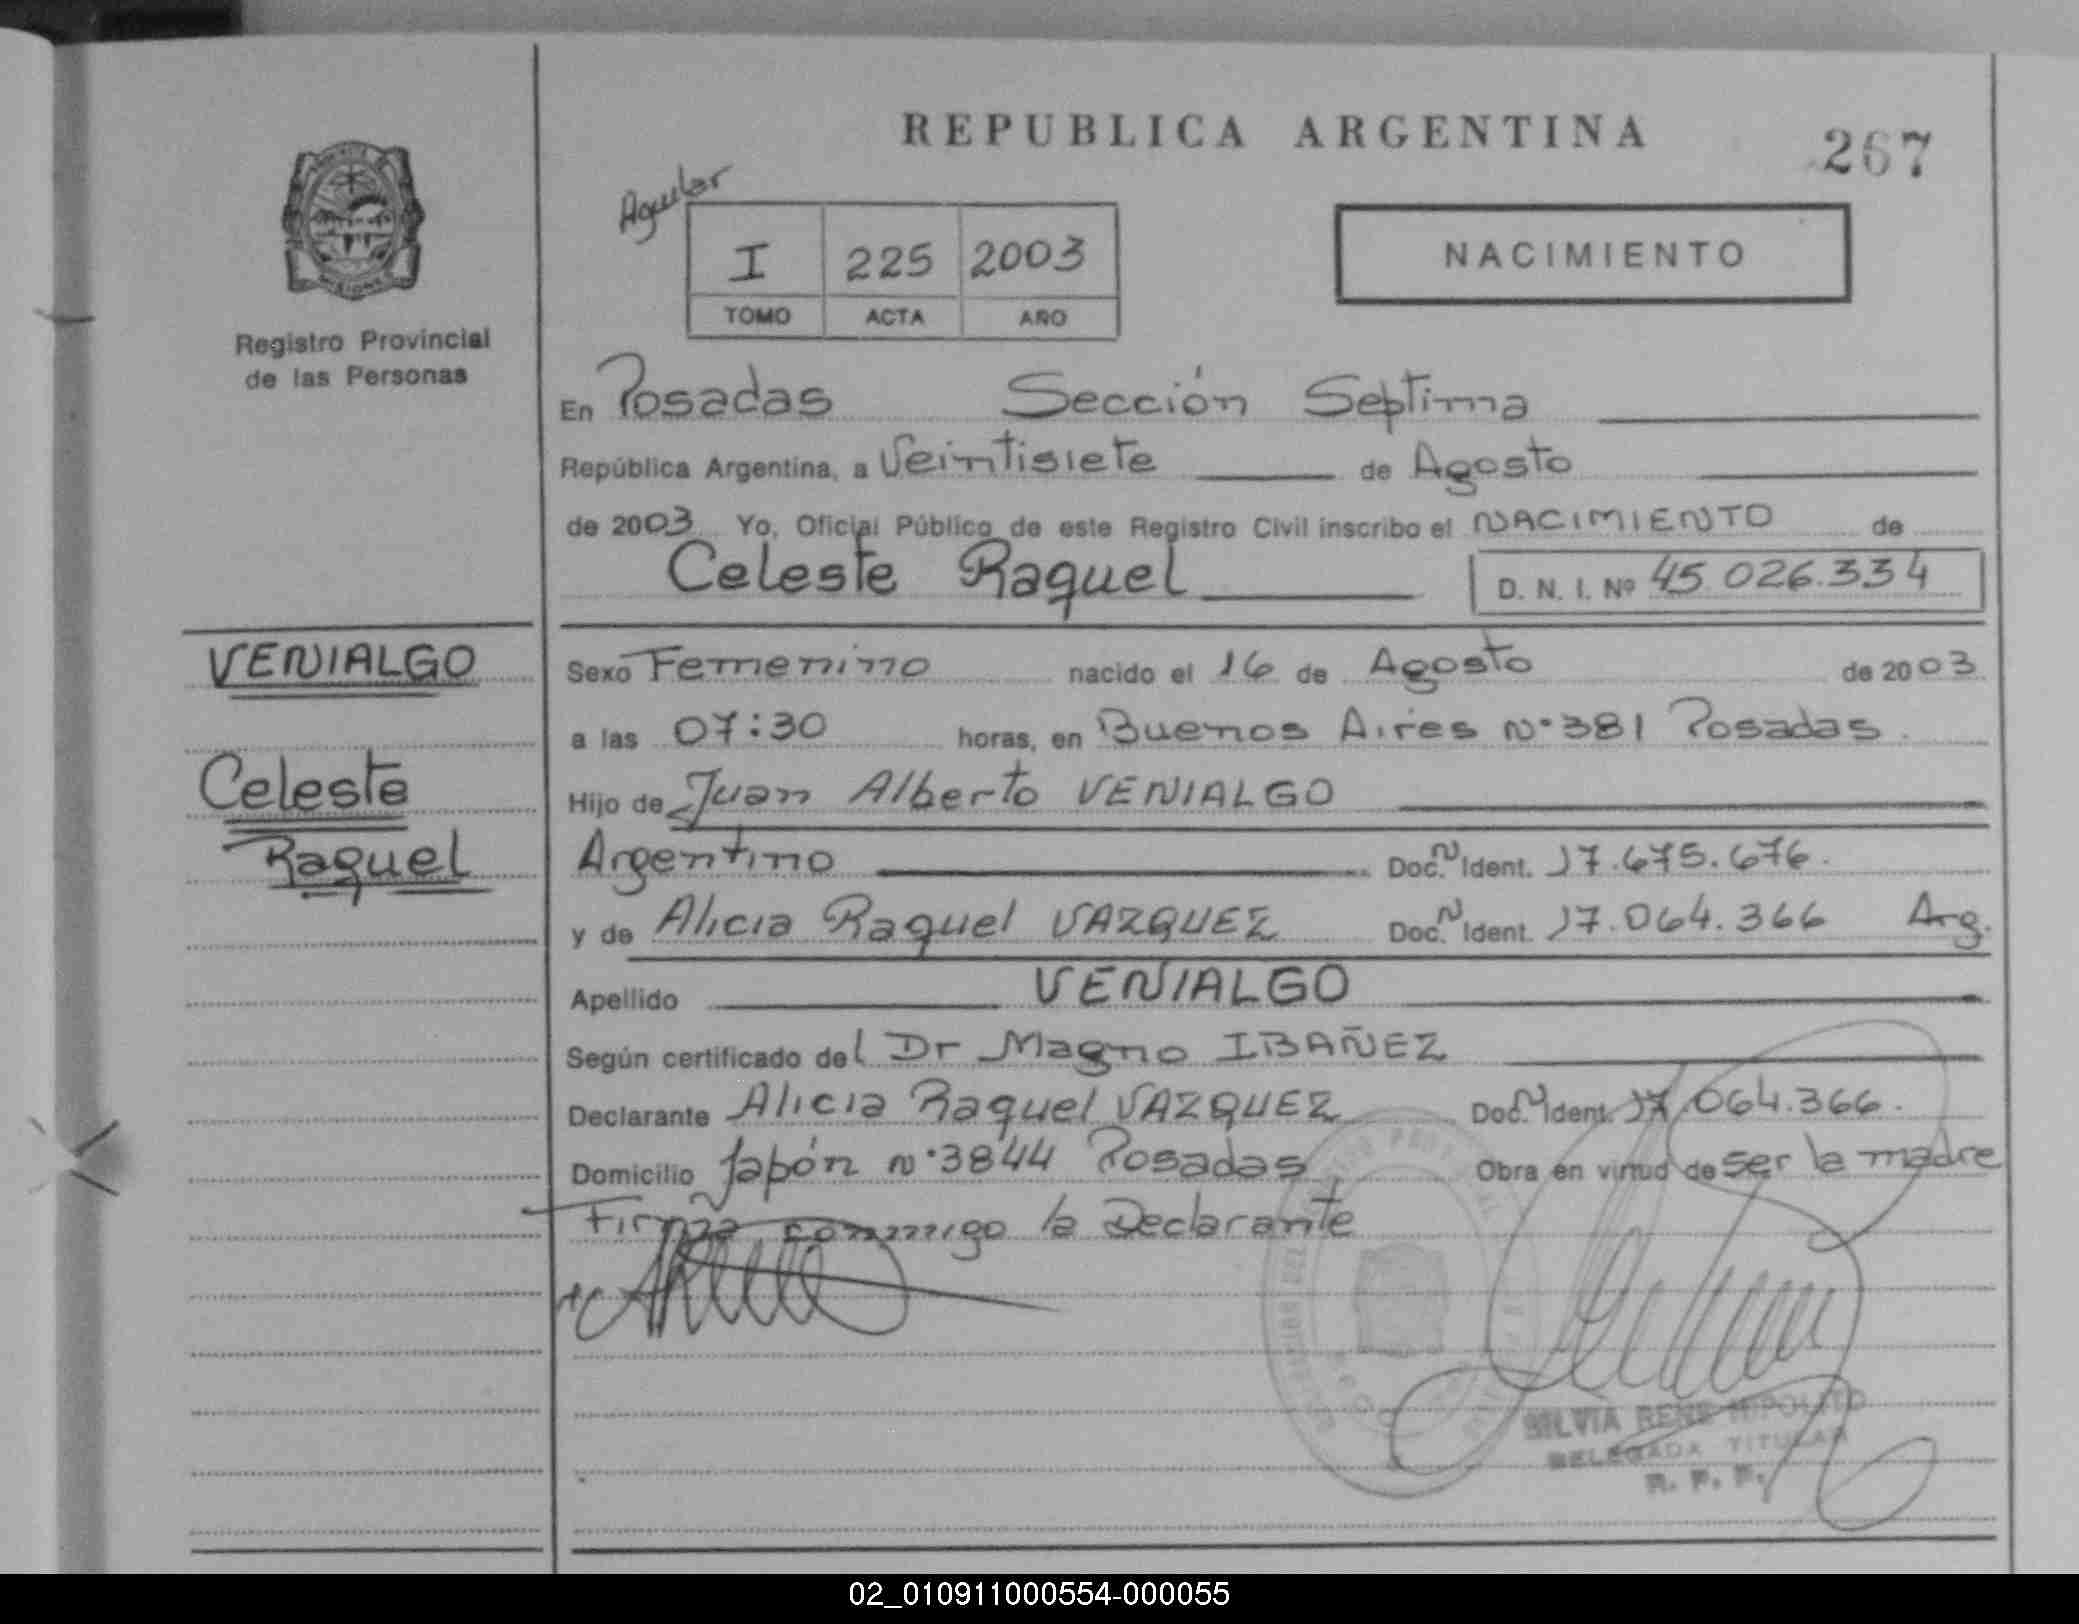 REPUBLICA ARGENTINA
267
Aguilar
I 225 2003
TOMO ACTA AÑO
NACIMIENTO
Registro Provincial
de las Personas
En Posadas Sección Septima
República Argentina, a Veintisiete de Agosto
de 2003 Yo, Oficial Público de este Registro Civil inscribo el NACIMIENTO de
Celeste Raquel D. N. I. Nº 45.026.334
VENIALGO
Celeste
Raquel
Sexo Femenino nacido el 16 de Agosto de 2003
a las 07:30 horas, en Buenos Aires Nº 381 Posadas.
Hijo de Juan Alberto VENIALGO
Argentino Doc. N Ident. 17.675.676.
y de Alicia Raquel VAZQUEZ Doc. N Ident. 17.064.366 Arg.
Apellido VENIALGO
Según certificado del Dr Magno IBAÑEZ
Declarante Alicia Raquel VAZQUEZ Doc. N Ident. 17.064.366.
Domicilio Japón Nº 3844 Posadas Obra en virtud de ser la madre
Firma conmigo la Declarante
SILVIA RENE HIPOLITO
DELEGADA TITULAR
R. P. P.
02_010911000554-000055